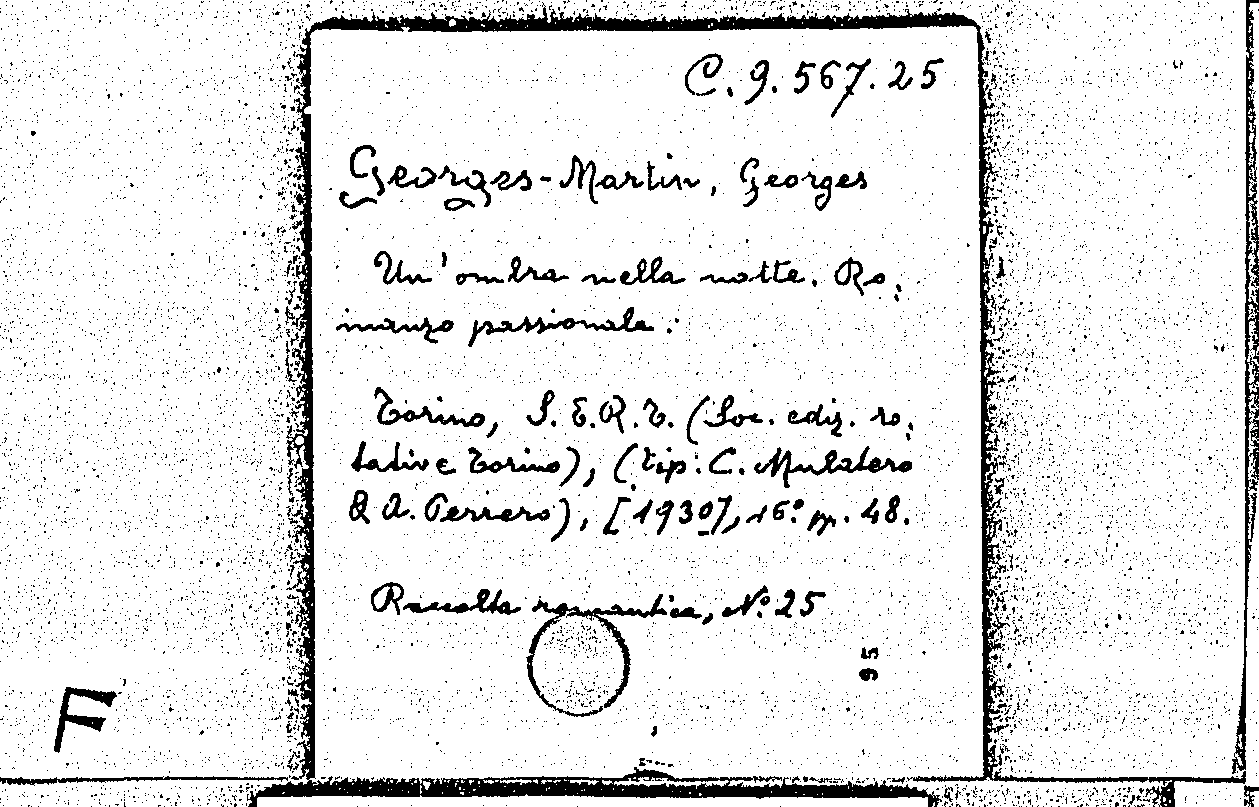 C. 9. 567. 25
Georges-Martin, Georges
Un' ombra nella notte. Ro:
manzo passionale.
Torino, S. E. R. T. (Soc. ediz. ro:
tative Torino), (tip. C. Mulatero
& A. Perrero), [1930], 16º pp. 48.
Raccolta romantica, Nº 25
95
F